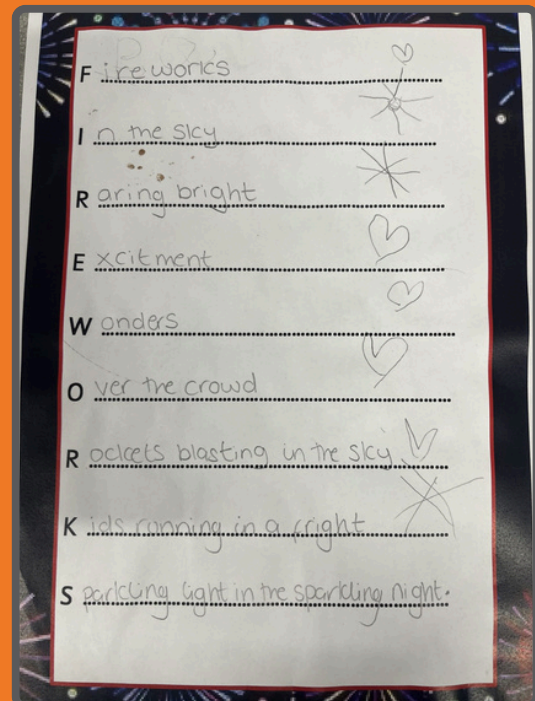 Fireworks
In the sky
Raring bright
Excitment
Wonders
Over the crowd
Rockets blasting in the sky
Kids running in a fright
Sparkling light in the sparkling night.